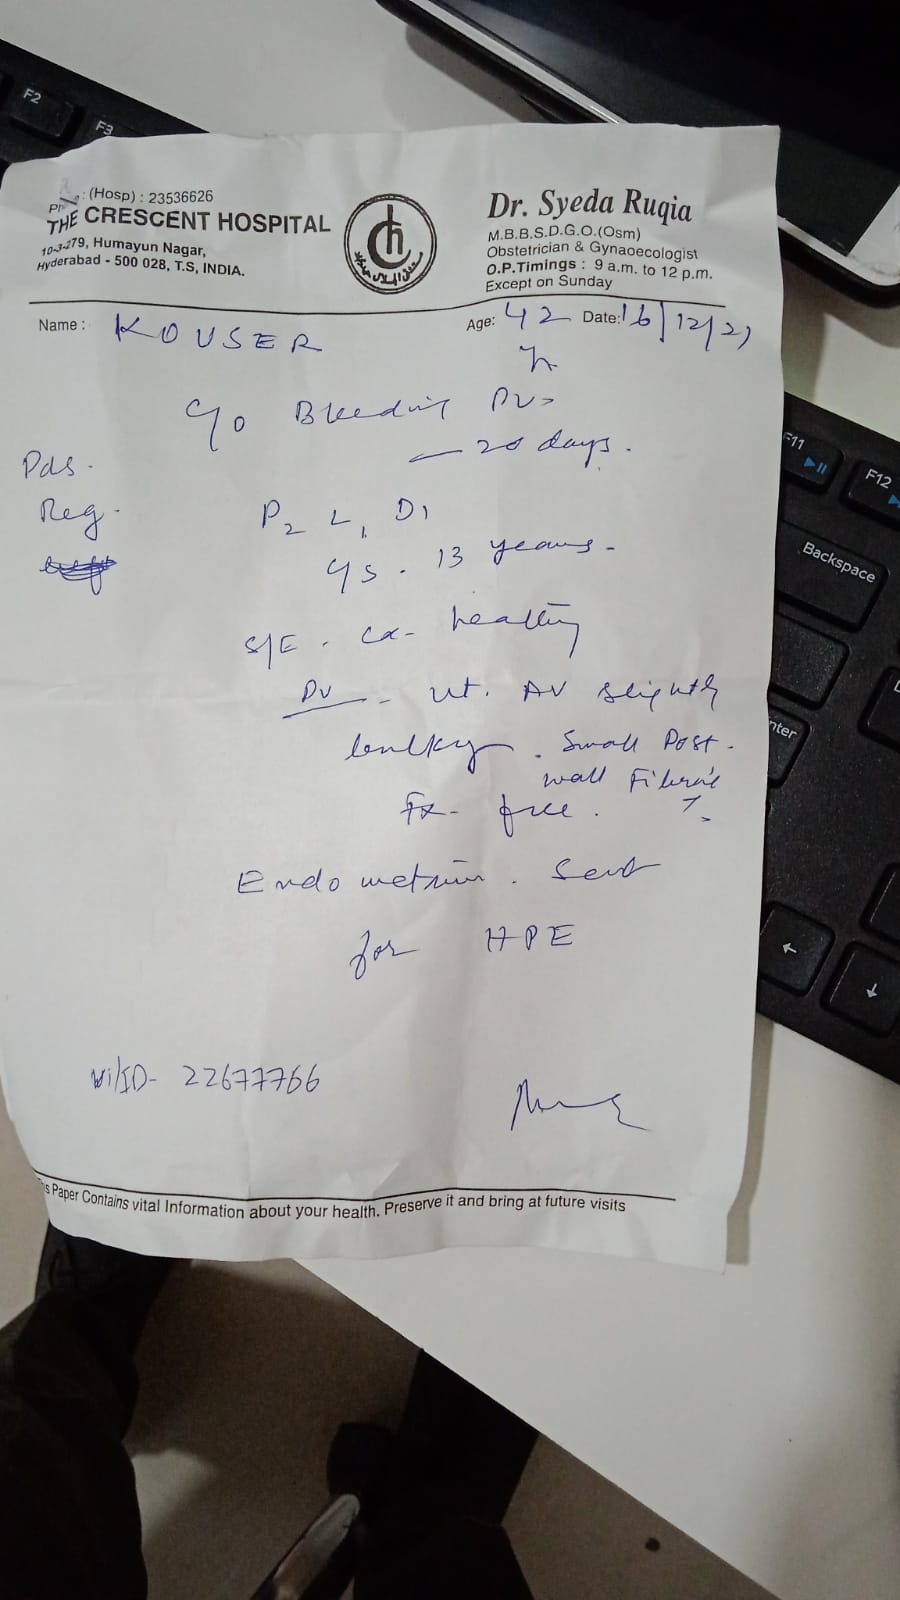 (Hosp) : 23536626
THE CRESCENT HOSPITAL
10-3-279, Humayun Nagar,
Hyderabad - 500 028, T.S, INDIA.
Dr. Syeda Ruqia
M.B.B.S.D.G.O.(Osm)
Obstetrician & Gynaoecologist
O.P.Timings : 9 a.m. to 12 p.m.
Except on Sunday
Name : KOUSER
Age: 42 Date: 16/12/21
c/o Bleeding PV
— 20 days.
Pds.
Reg.
P2 L1 D1
13 years.
S/E. Cx- healthy
PV - Ut. AV slightly
bulky. Small Post.
wall Fibroid
?
Fx- free.
Endometrium. Sent
for HPE
22677766
Paper Contains vital Information about your health. Preserve it and bring at future visits
F2
F3
F11
F12
Backspace